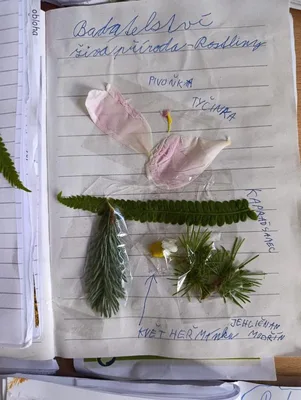 obloha
Badatelství
živá příroda - Rostliny
PIVOŇKA
TYČINKA
KAPRAĎ SAMEC
KVĚT HEŘMÁNKU
JEHLIČNAN
MODŘÍN